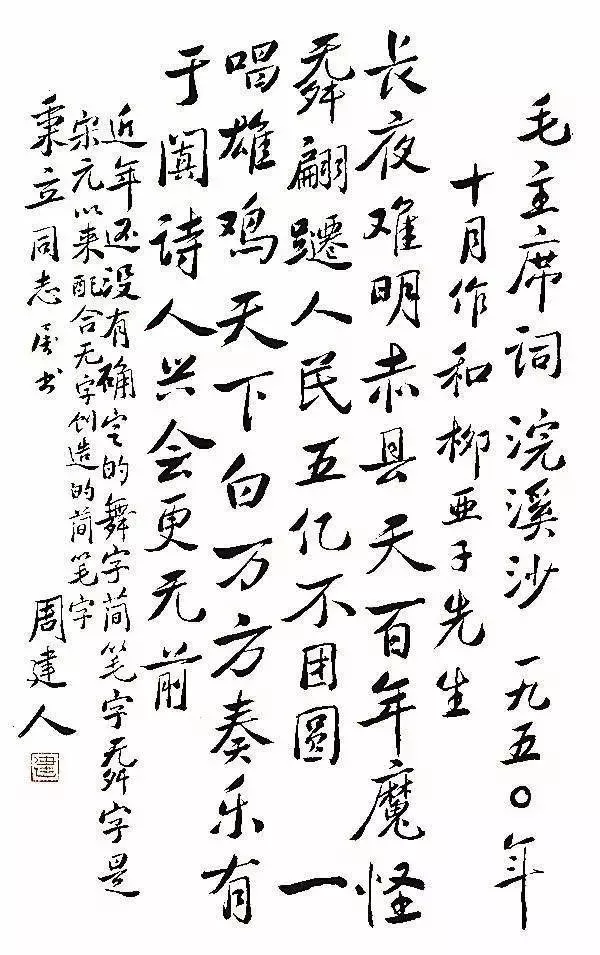 毛主席词浣溪沙 一九五〇年
十月作和柳亚子先生
长夜难明赤县天百年魔怪
舞翩躚人民五亿不团圆一
唱雄鸡天下白万方奏乐有
于阗诗人兴会更无前
近年还没有确定的舞字简笔字舞字是
宋元以来配合无字创造的简笔字
秉立同志属书 周建人